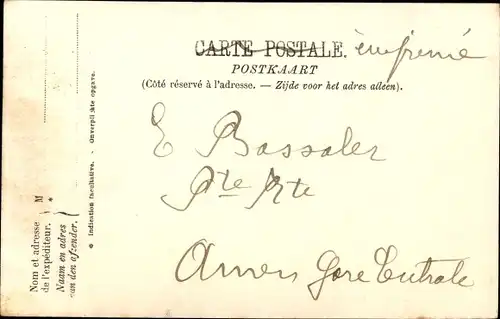 CARTE POSTALE. imprimé
POSTKAART
(Côté réservé à l'adresse. — Zijde voor het adres alleen).
E Bassaler
Pte Rte
Amiens Gare Centrale
Nom et adresse
de l'expéditeur.
Naam en adres
van den afzender.
M
*
* Indication facultative. - Onverplichte opgave.